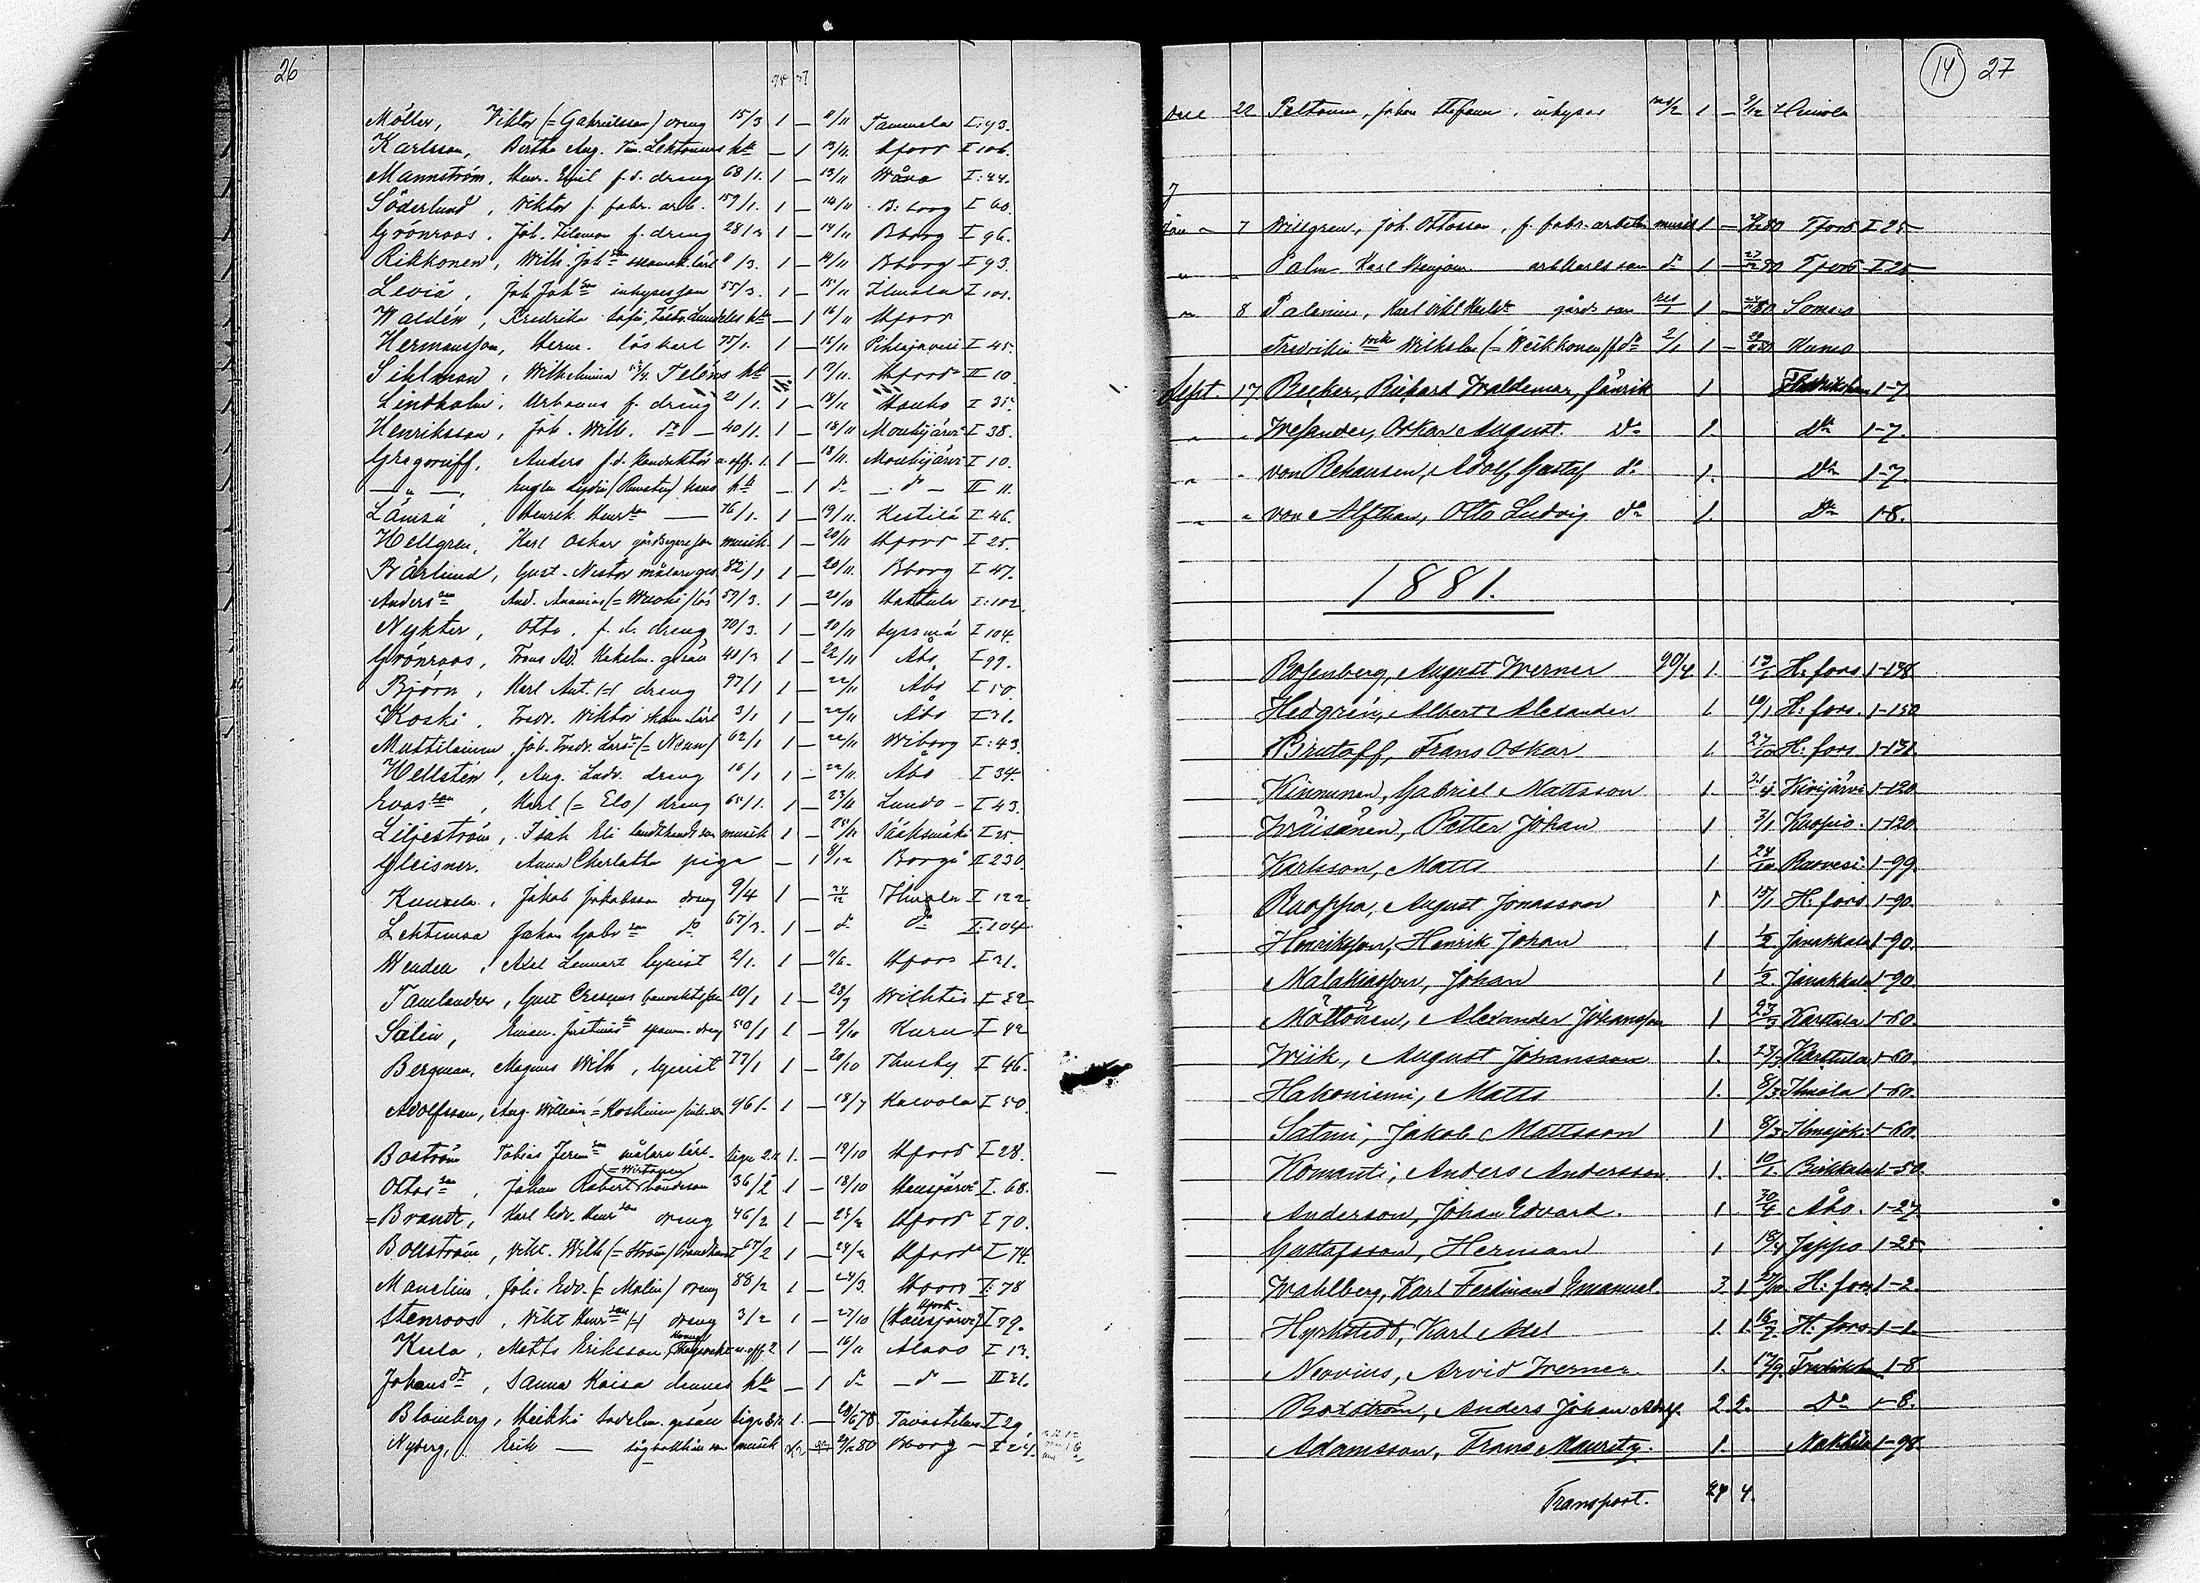 26
Möller, Viktor (= Gabrielsson) dreng 15/3 1 — 11/11 Tammela I:93.
Karlsson, Bertha Aug. Lektonens htt — 1 13/11 Hfors I 106.
Mannström, Henr. Emil f.d. dreng 68/1. 1 — 13/11 Wåno I:44.
Söderlund, Viktor f. fabr. arb. 159/1. 1 — 14/11 B:borg I 60.
Grönroos, Joh. Fileman f. dreng 28/3 1 — 14/11 Bborg I 96.
Rikkonen, Wilh. Joh:son skomak. lärl 8/3. 1 — 14/11 Bborg I 93.
Leviä, Joh. Joh:son inhyses son 55/3. 1 — 15/11 Ilmola I 101.
Waldén, Fredrika Sofia, htt — 1 16/11 Hfors
Hermansson, Herm. löskarl 75/1. 1 — 15/11 Pihlajavesi I 45.
Sihlman, Wilhelmina Teléns htt — 1 17/11. Hfors II 10
Lindholm, Urbanus f. dreng 21/1. 1 — 18/11 Hauho I 35.
Henriksson, Joh. Wilh. do — 40/1. 1 — 18/11 Mouhijärvi I 38.
Gregorieff, Anders f.d. konduktör u. off. 1. 1 — 18/11. Mouhijärvi I 10.
— " —, Lydia hans htt — 1 do — do — II 11.
Länsä, Henrik Henr:son — 76/1. 1 — 19/11. Hestilä I 46.
Hellgren, Karl Oskar gårdsegare son musik. 1 — 20/11 Hfors I 25.
Bärlund, Gust. Nestor målareges. 82/1 1 — 20/11. Bborg I 47.
Anders:son And. Ananias (= Wuoki) lös 59/3. 1 — 20/10 Hattula I:102
Nykter, Otto, f.d. dreng 70/3. 1 — 20/11 Sysmä I 104.
Grönroos, Frans Ad. Kakelm. gesäll 40/3 1 — 22/11 Åbo I 99.
Björn, Karl Ant. (=) dreng 97/1 1 — 22/11 Åbo I 50.
Koski, Fredr. Wiktor skom. lärl 3/1 1 — 22/11 Åbo I 31.
Muttilainen, Joh. Fredr. Lars:son (= Neun) 62/1 1 — 22/11 Wiborg I:43.
Hellstén, Aug. Ludv. dreng 16/1 1 — 22/11. Åbo I 34.
Evas:son, Karl (= Elo) dreng 65/1. 1 — 23/11 Lundo — I 43.
Liljeström, Isak Eli musik 1 — 25/11 Sääksmäki I 25.
Gleisner, Anna Charlotta piga — 1 8/12 Borgå II 230
Kunnela, Jakob Jakobsson dreng 9/4 1 — 24/12 Ilmola I 122
Lehtimaa Johan Gabr:son do 67/3. 1 — do do I:104
Wendell, Axel Lennart lyceist 2/1. 1 — 11/6. Hfors I 31.
Tamlander, Gust Cresens 10/1 1 — 28/7 Wichtis I 32
Salin, Eman. Justinus:son dreng 50/1 1 — 9/10 Kuru I 42
Bergman, Magnus Wilh, lyceist 77/1 1 — 20/10 Thusby I 46.
Adolfsson, Aug. William (= Koskinen) 96/1. 1 — 18/7 Kalvola I 50.
Boström Tobias Jerem:son målare lärl. ligr. 2. 1. — 19/10 Hfors I 28.
Ottos:son, Johan Robert (= Wirtanen) bondeson 36/2 1 — 18/10 Hausjärvi I. 68.
= Brandt, Karl Edv. Henr:son dreng 46/2 1 — 25/2 Hfors I 70.
Bollström, Vikt. Wilh (= Ström) 67/2 1 — 24/2 Hfors I 74.
Manelius, Joh. Edv. (= Malin) dreng 88/2 1 — 24/3. Hfors I:78
Stenroos, Vikt Henr:son (=) dreng 3/2 1 — 27/10 (Hausjärvi) Hfors I 79.
Kula, Matts Eriksson, u. off. 2 1 — 16/11 Alavo I 13.
Johans:dr, Sanna Kaisa dennes htt — 1 do — do — II 31.
Blomberg, Heikki Sadelm. gesäll ligr 1. — 28/6 78 Tavastehus I 29.
Nyberg, Erik — musik 29/12 80 Bborg — I 24.
14 27
Dec 22 Peltonen, Johan Stefan, inhyses 1 — 9/12 Heinola
Jan — 7 Willgren, Joh. Ottosson, f. fabr. arbetare musik 1 — 80 Tfors I 25
" " Palm Karl Benjam arbkarls son do 1 — 27/12 80 Tfors I 25
" 8 Palenius, Karl Vikt gårds son 1 — 80 Somero
Fredrikson Wilhelm (= Weikkonen) do 2/1 1 — 80 Humo
Sept. 17 Becker, Rickard Waldemar, fänrik 1 Fredrikshamn 1-7
" " Wesander, Oskar August. do 1. do 1-7.
" " von Rehausen, Adolf Gustaf do 1. do 1-7.
" " von Alfthan, Otto Ludvig do 1. do 1-8.
1881.
Rosenberg, August Werner 90/4 1. 13/1 H:fors 1-138
Hedgrén, Albert Alexander 1. 10/1 H:fors. 1-150
Pirutoff, Frans Oskar 1. 27/10 H:fors 1-131.
Kinnunen, Gabriel Mattsson 1. 21/4 Kivijärvi 1-120
Wäisänen, Petter Johan 1 3/1 Kuopio. 1-120
Karlsson, Matts 1 24/10 Ruovesi 1-99.
Ruoppa, August Jonasson 1 15/1 H:fors 1-90.
Henriksson, Henrik Johan 1 1/2 Janakkala 1-90.
Malakiasson, Johan 1 1/2 Janakkala 1-90
Möttönen, Alexander Johansson 1 23/3 Karttula 1-60.
Wiik, August Johansson 1. 23/3 Karstula 1-60.
Hakoniemi, Matts 1. 8/3 Ilmola 1-60.
Satmi, Jakob Mattsson 1 8/3 Ilmajoki 1-60.
Komanti, Anders Andersson 1. 10/1. Birkkala 1-50.
Anderson, Johan Edvard. 1. 30/4 Åbo. 1-27.
Gustafsson, Herman 1 18/4 Jeppo 1-25
Wahlberg, Karl Ferdinand Emanuel. 3 1 27/10. H:fors 1-2.
Hyrkstedt, Karl Axel 1. 1. 16/7. H:fors 1-1.
Neovius, Arvid Werner 1. 17/9. Fredrikshn 1-8
Boxström, Anders Johan Adolf. 2 2. Do 1-8.
Adamsson, Frans Mauritz. 1. Nakkila 1-98.
Transport. 24 4.